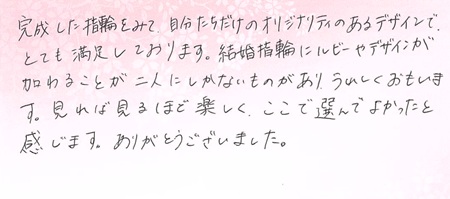 完成した指輪をみて、自分たちだけのオリジナリティのあるデザインで、
とても満足しております。結婚指輪にルビーやデザインが
加わることが二人にしかないものがあり、うれしくおもいま
す。見れば見るほど楽しく、ここで選んでよかったと
感じます。ありがとうございました。